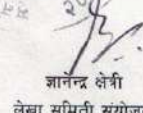 ज्ञानेन्द्र क्षेत्री
लेखा समिती संयोजक